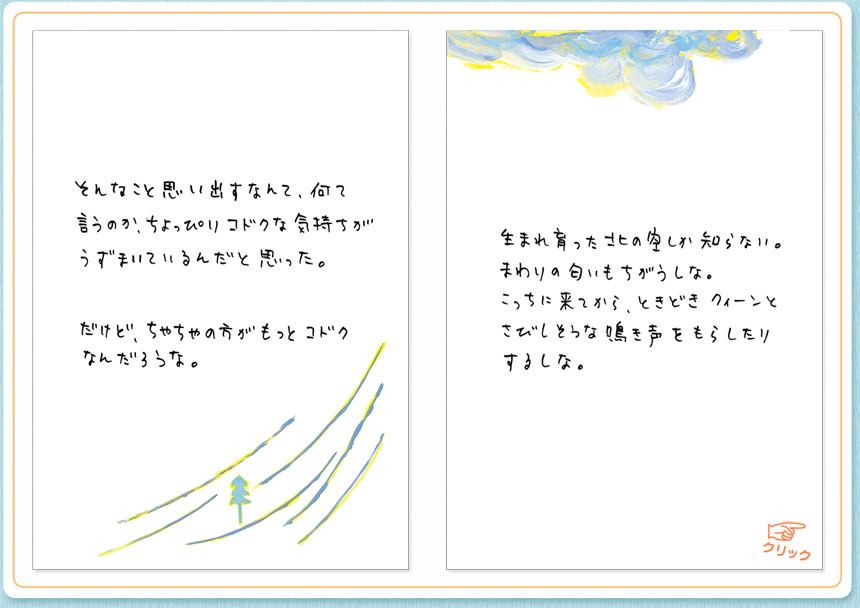 そんなこと思い出すなんて、何て
言うのか、ちょっぴりコドクな気持ちが
うずまいているんだと思った。
だけど、ちゃちゃの方がもっとコドク
なんだろうな。
生まれ育った北の空しか知らない。
まわりの匂いもちがうしな。
こっちに来てから、ときどきクィーンと
さびしそうな鳴き声をもらしたり
するしな。
クリック